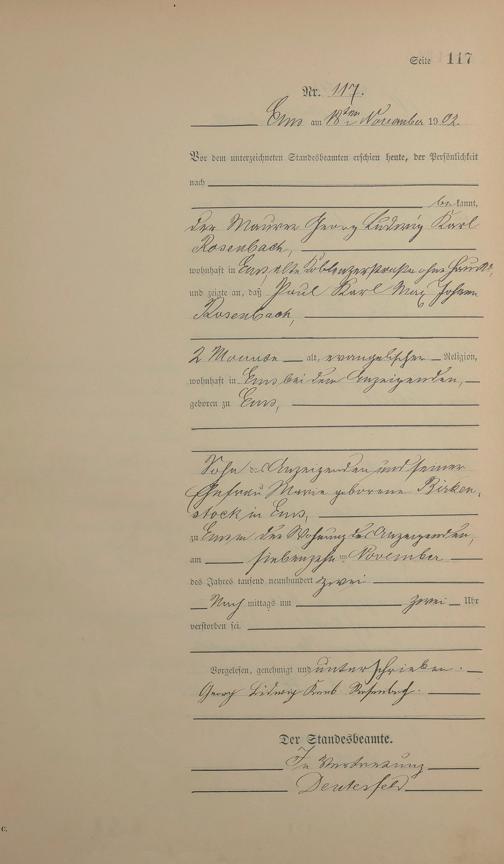 Seite 117
Nr. 117.
Ems am 18ten November 1902.
Vor dem unterzeichneten Standesbeamten erschien heute, der Persönlichkeit
nach
bekannt,
der Maurer Georg Ludwig Karl
Rosenbach,
wohnhaft in Ems, alte Koblenzerstraße ohne Haus
und zeigte an, daß Paul Karl Max Johann
Rosenbach,
2 Monate alt, evangelischer Religion,
wohnhaft in Ems bei dem Anzeigenden,
geboren zu Ems,
Sohn des Anzeigenden und seiner
Ehefrau Marie geborene Birken-
stock in Ems,
zu Ems in der Wohnung des Anzeigenden,
am siebenzehnten November
des Jahres tausend neunhundert zwei
Nach mittags um zwei Uhr
verstorben sei.
Vorgelesen, genehmigt und unterschrieben.
Georg Ludwig Karl Rosenbach.
Der Standesbeamte.
In Vertretung
C.